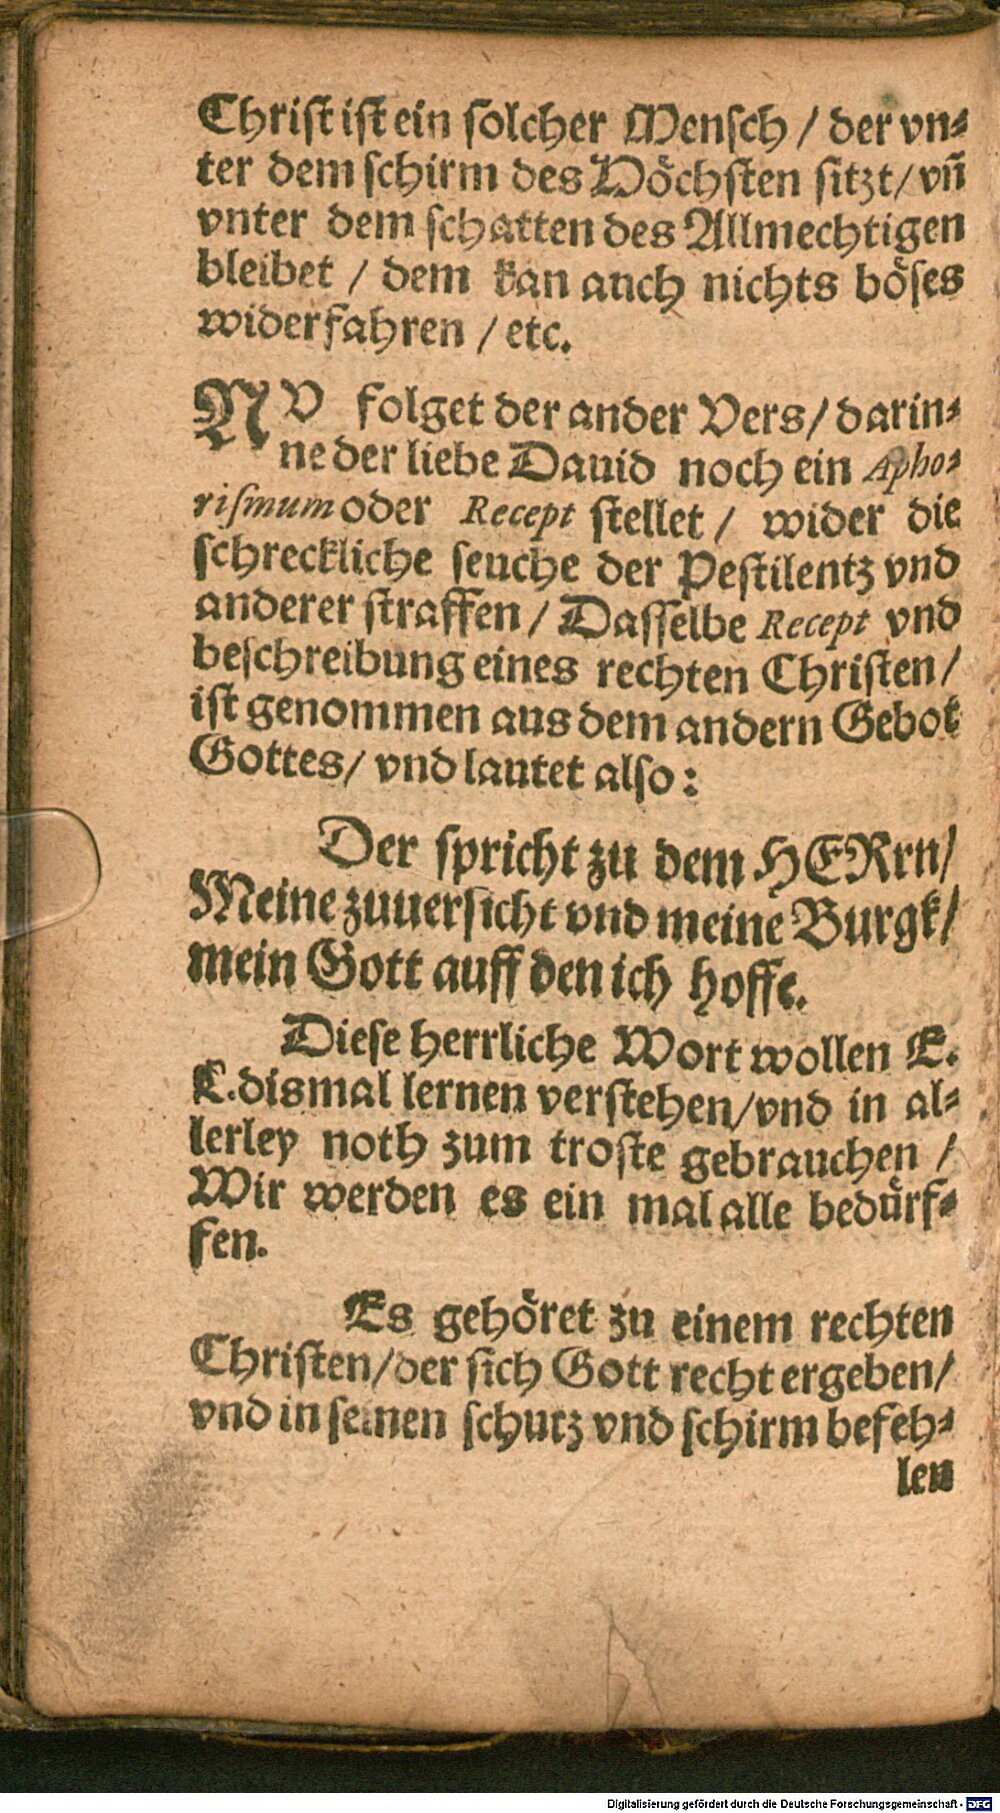 Christ ist ein solcher Mensch / der vn⸗
ter dem schirm des Höchsten sitzt / vn̄
vnter dem schatten des Allmechtigen
bleibet / dem kan auch nichts böses
widerfahren / etc.
NV folget der ander Vers / darin⸗
ne der liebe Dauid noch ein Apho⸗
rismum oder Recept stellet / wider die
schreckliche seuche der Pestilentz vnd
anderer straffen / Dasselbe Recept vnd
beschreibung eines rechten Christen /
ist genommen aus dem andern Gebot
Gottes / vnd lautet also:
Der spricht zu dem HERrn /
Meine zuuersicht vnd meine Burgk /
mein Gott auff den ich hoffe.
Diese herrliche Wort wollen E.
L. dismal lernen verstehen / vnd in al⸗
lerley noth zum troste gebrauchen /
Wir werden es ein mal alle bedürf⸗
fen.
Es gehöret zu einem rechten
Christen / der sich Gott recht ergeben /
vnd in seinen schutz vnd schirm befeh⸗
len
Digitalisierung gefördert durch die Deutsche Forschungsgemeinschaft - DFG